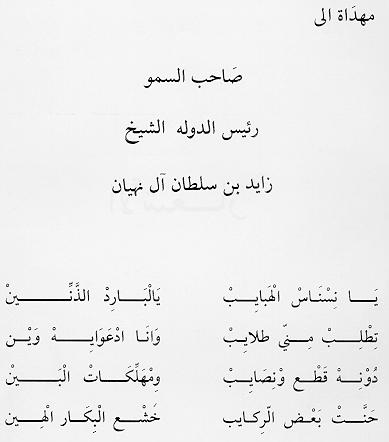 مهدَاة الى
صَاحب السمو
رئيس الدوله الشيخ
زايد بن سلطان آل نهيان
يَا نِسْنَاسْ الْهَبَايِبْ يَالْبَارِدْ الذَّنِّينْ
تِطْلِبْ مِنِّي طلايِبْ وَانَا ادْعَوَايِهْ وَيْن
دُونِهْ قَطْع وْنصَايِبْ وِمْهَلِّكَاتْ الْبَيْن
حَنَّتْ بَعْض الرِكايب خُشْع الْبِكَار الْهين